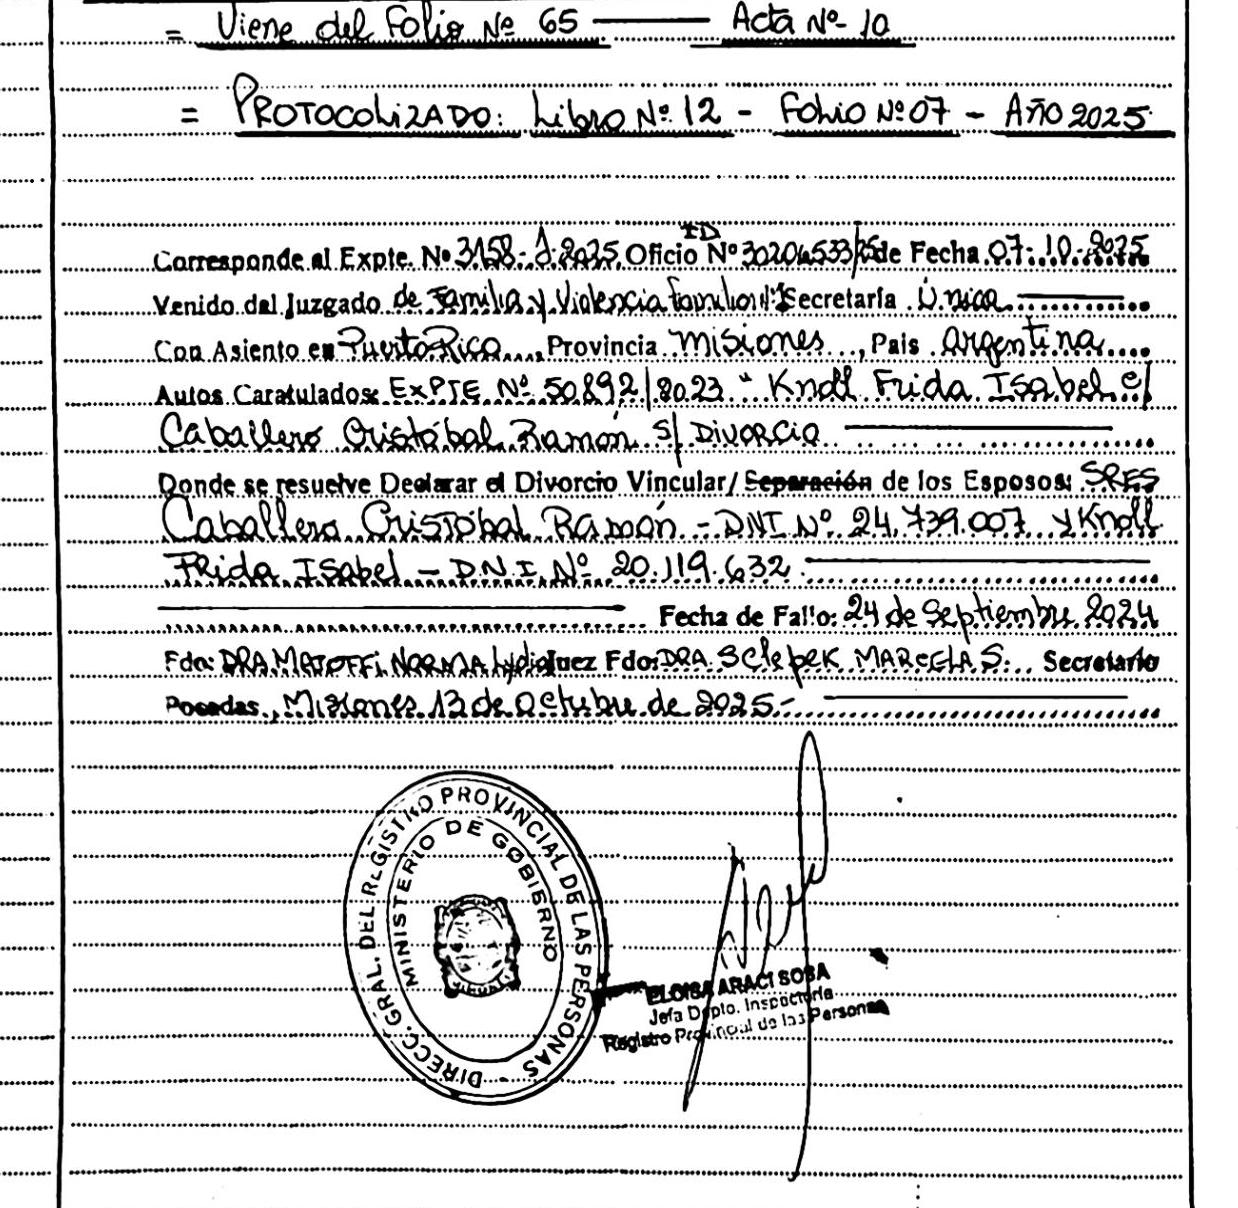 = Viene del Folio Nº 65 — Acta Nº 10
= PROTOCOLIZADO: Libro Nº 12 - Folio Nº 07 - AÑO 2025
Corresponde al Expte. Nº 3158-J-2025 Oficio ID Nº 30204533/25 de Fecha 07-10-2025
Venido del Juzgado de Familia y Violencia Familiar Nº 1 Secretaría Única
Con Asiento en Puerto Rico, Provincia Misiones, País Argentina
Autos Caratulados: EXPTE Nº 50892/2023 "Knoll Frida Isabel c/
Caballero Cristóbal Ramón s/ Divorcio
Donde se resuelve Declarar el Divorcio Vincular/Separación de los Esposos: SRES
Caballero Cristóbal Ramón - DNI Nº 24.739.007 y Knoll
Frida Isabel - D.N.I. Nº 20.119.632
Fecha de Fallo: 24 de Septiembre 2024
Fdo: DRA. MATOFFI NORMA Lydia Juez Fdo: DRA. Sclepek MARCELA S. Secretario
Posadas, Misiones 13 de Octubre de 2025.-
DIRECC. GRAL. DEL REGISTRO PROVINCIAL DE LAS PERSONAS -
MINISTERIO DE GOBIERNO
ELOISA ARACI SOSA
Jefa Dpto. Inspectoría
Registro Provincial de las Personas